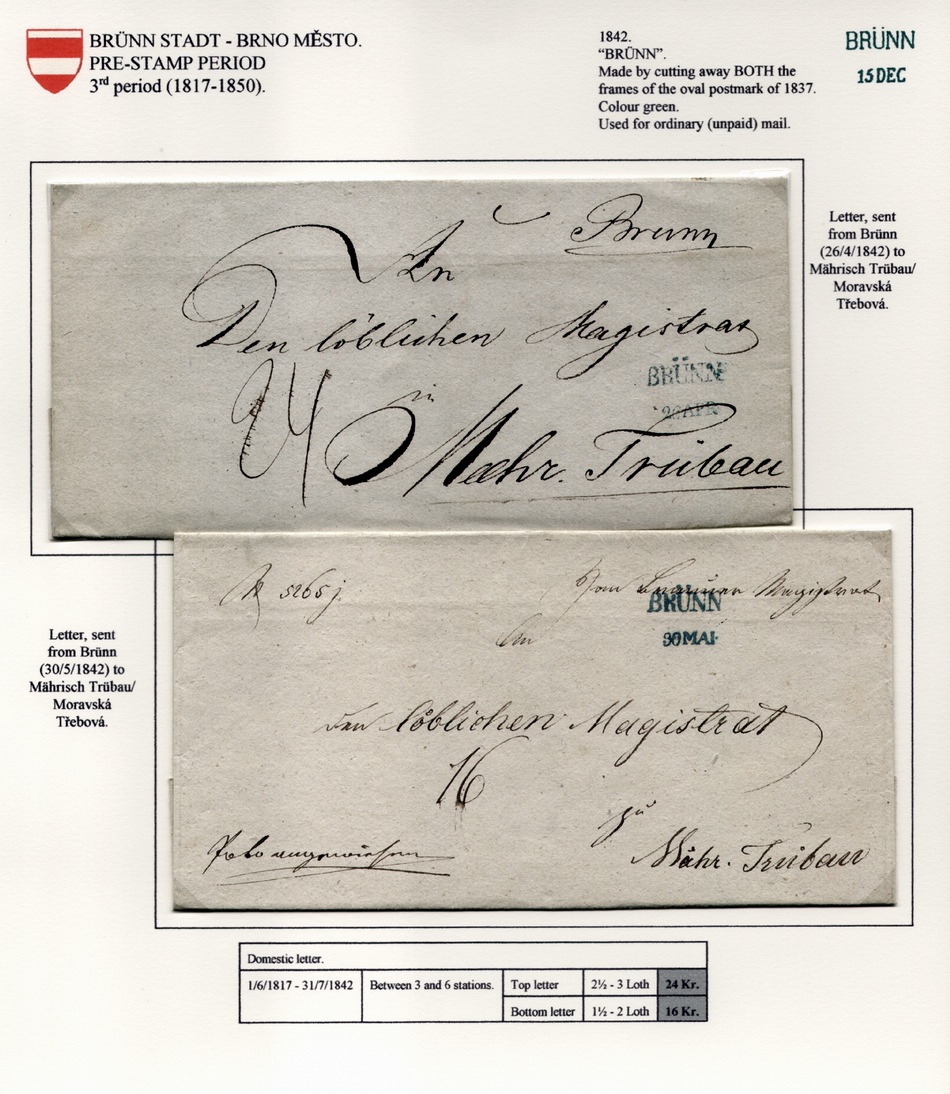 BRÜNN STADT - BRNO MĚSTO.
PRE-STAMP PERIOD
3rd period (1817-1850).
1842.
“BRÜNN”.
Made by cutting away BOTH the
frames of the oval postmark of 1837.
Colour green.
Used for ordinary (unpaid) mail.
BRÜNN
15 DEC
Brünn
An
Den löblichen Magistrat
BRÜNN
26 APR
24
in
Maehr. Trübau
Letter, sent
from Brünn
(26/4/1842) to
Mährisch Trübau/
Moravská
Třebová.
Letter, sent
from Brünn
(30/5/1842) to
Mährisch Trübau/
Moravská
Třebová.
5265
Vom Brünner Magistrat
BRÜNN
30 MAI
An
den löblichen Magistrat
16
zu
Mähr. Trübau
Porto angewiesen
Domestic letter.
1/6/1817 - 31/7/1842 Between 3 and 6 stations. Top letter 2½ - 3 Loth 24 Kr.
Bottom letter 1½ - 2 Loth 16 Kr.